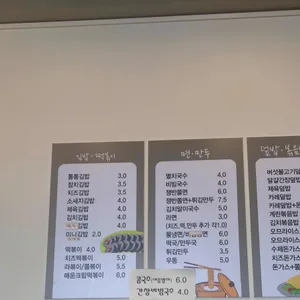 김밥·떡볶이
몽통김밥 3,0
참치김밥 3,5
치즈김밥 3,5
소세지김밥 4,0
제육김밥 4,0
김치김밥 4,0
김밥 4,0
미니김밥 2,0
떡볶이 4,0
치즈떡볶이 5,0
라볶이/쫄볶이 5,5
매운크림떡볶이 5,5
면·만두
멸치국수
비빔국수
쟁반쫄면 6,0
쟁반쫄면+튀김만두 7,5
김치말이국수 5,0
라면 3,5
(치즈,떡,만두 추가 각1,0)
물냉면/비 6,0
떡국/만두국 6,0
튀김만두 3,5
우동 5,0
덮밥·볶음
버섯불고기덮
달걀간장덮밥
제육덮밥
카레덮밥
카레덮밥+돈
계란볶음밥
김치볶음밥
오므라이스
오므라이스+
수제돈가스
치즈돈가스
돈가스+쫄
콩국수 6.0
간장비빔국수 4.0